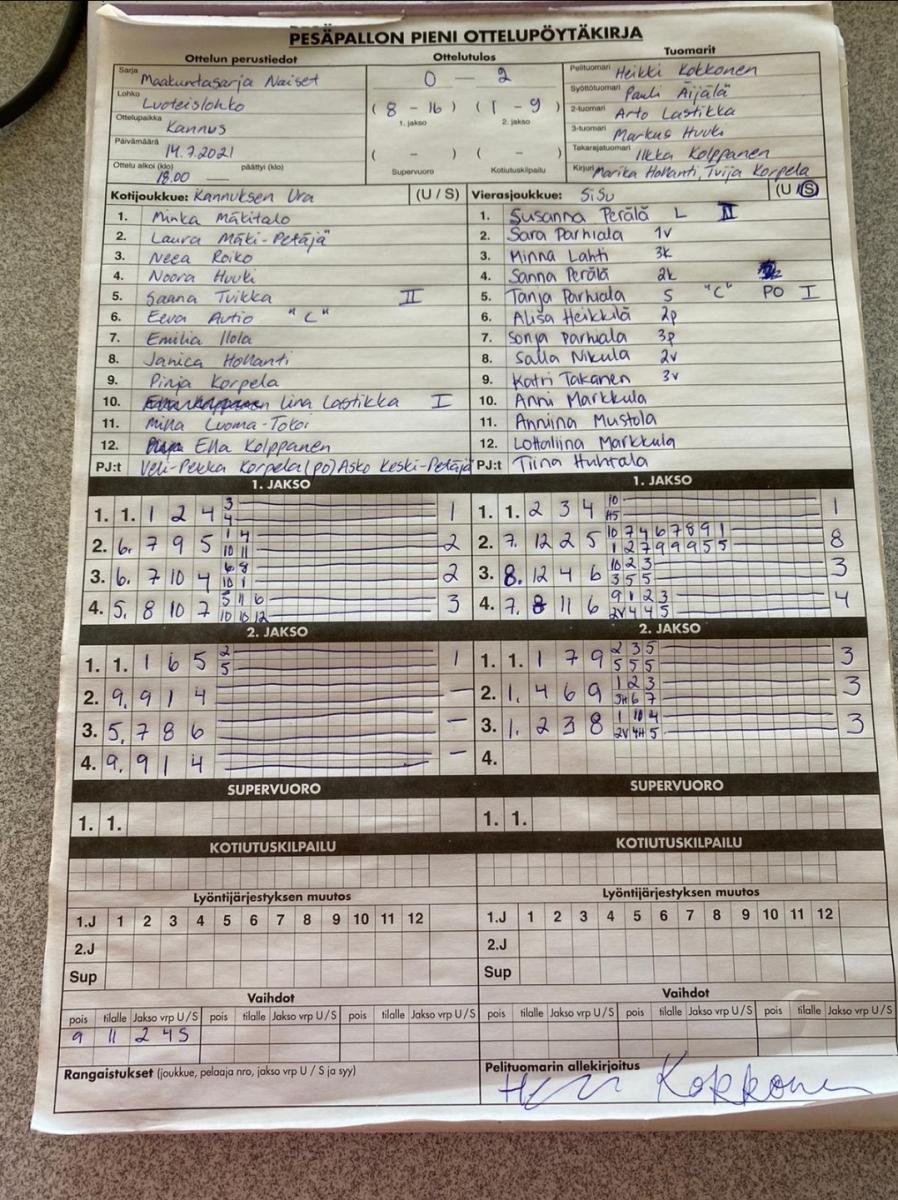 PESÄPALLON PIENI OTTELUPÖYTÄKIRJA
Ottelun perustiedot
Sarja Maakuntasarja Naiset
Lohko Luoteislohko
Ottelupaikka Kannus
Päivämäärä 14.7.2021
Ottelu alkoi (klo) 18.00 päättyi (klo) —
Ottelutulos
0 — 2
(8 - 16) (1 - 9)
1. jakso 2. jakso
( - ) ( - )
Supervuoro Kotiutuskilpailu
Tuomarit
Pelituomari Heikki Kokkonen
Syöttötuomari Pauli Äijälä
2-tuomari Arto Lastikka
3-tuomari Markus Huuki
Takarajatuomari Ilkka Kolppanen
Kirjuri Marika Hollanti, Tuija Korpela
Kotijoukkue: Kannuksen Ura (U / S)
1. Minka Mäkitalo
2. Laura Mäki-Petäjä
3. Neea Roiko
4. Noora Huuki
5. Saana Tvikka II
6. Eeva Autio "C"
7. Emilia Ilola
8. Janica Hollanti
9. Pinja Korpela
10. Lina Lastikka I
11. Milla Luoma-Tokoi
12. Ella Kolppanen
PJ:t Veli-Pekka Korpela (PO) Asko Keski-Petäjä
Vierasjoukkue: SiSu (U / S)
1. Susanna Perälä L II
2. Sara Parhiala 1v
3. Minna Lahti 3k
4. Sanna Perälä 2k
5. Tanja Parhiala S "C" PO I
6. Alisa Heikkilä 2p
7. Sonja Parhiala 3p
8. Salla Nikula 2v
9. Katri Takanen 3v
10. Anni Markkula
11. Anniina Mustola
12. Lottaliina Markkula
PJ:t Tiina Huhtala
1. JAKSO
1. 1. 1 2 4 3 1
4
2. 6. 7 9 5 1 4 2
10 11
3. 6. 7 10 4 6 8 2
10 1
4. 5. 8 10 7 5 11 6 3
10 10 12
2. JAKSO
1. 1. 1 6 5 2 1
5
2. 9. 9 1 4 —
3. 5. 7 8 6 —
4. 9. 9 1 4 —
SUPERVUORO
1. 1.
KOTIUTUSKILPAILU
1. JAKSO
1. 1. 2 3 4 10 1
H5
2. 7. 12 2 5 10 7 4 6 7 8 9 1 8
1 2 7 9 9 9 5 5
3. 8. 12 4 6 10 2 3 3
3 5 5
4. 7. 8 11 6 9 1 2 3 4
2V 4 4 5
2. JAKSO
1. 1. 1 7 9 2 3 5 3
5 5 5
2. 1. 4 6 9 1 2 3 3
3H 6 7
3. 1. 2 3 8 1 10 4 3
2V 4H 5
4.
SUPERVUORO
1. 1.
KOTIUTUSKILPAILU
Lyöntijärjestyksen muutos
1.J 1 2 3 4 5 6 7 8 9 10 11 12
2.J
Sup
Vaihdot
pois tilalle Jakso vrp U/S pois tilalle Jakso vrp U/S pois tilalle Jakso vrp U/S
9 11 2 4S
Rangaistukset (joukkue, pelaaja nro, jakso vrp U / S ja syy)
Lyöntijärjestyksen muutos
1.J 1 2 3 4 5 6 7 8 9 10 11 12
2.J
Sup
Vaihdot
pois tilalle Jakso vrp U/S pois tilalle Jakso vrp U/S pois tilalle Jakso vrp U/S
Pelituomarin allekirjoitus
Kokkonen